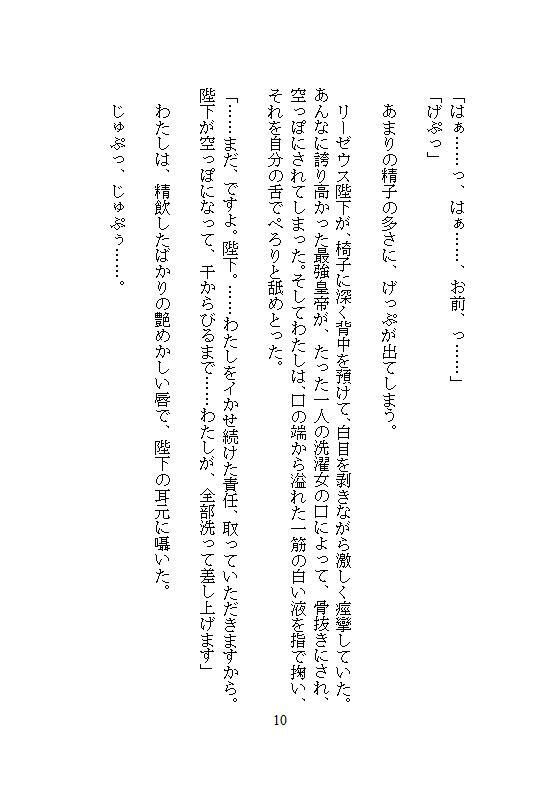 「はぁ……っ、はぁ……、お前、っ……」
「げぷっ」
あまりの精子の多さに、げっぷが出てしまう。
リーゼウス陛下が、椅子に深く背中を預けて、白目を剥きながら激しく痙攣していた。
あんなに誇り高かった最強皇帝が、たった一人の洗濯女の口によって、骨抜きにされ、
空っぽにされてしまった。そしてわたしは、口の端から溢れた一筋の白い液を指で掬い、
それを自分の舌でぺろりと舐めとった。
「……まだ、ですよ。陛下。……わたしをイかせ続けた責任、取っていただきますから。
陛下が空っぽになって、干からびるまで……わたしが、全部洗って差し上げます」
わたしは、精飲したばかりの艶めかしい唇で、陛下の耳元に囁いた。
じゅぷっ、じゅぷぅ……。
10